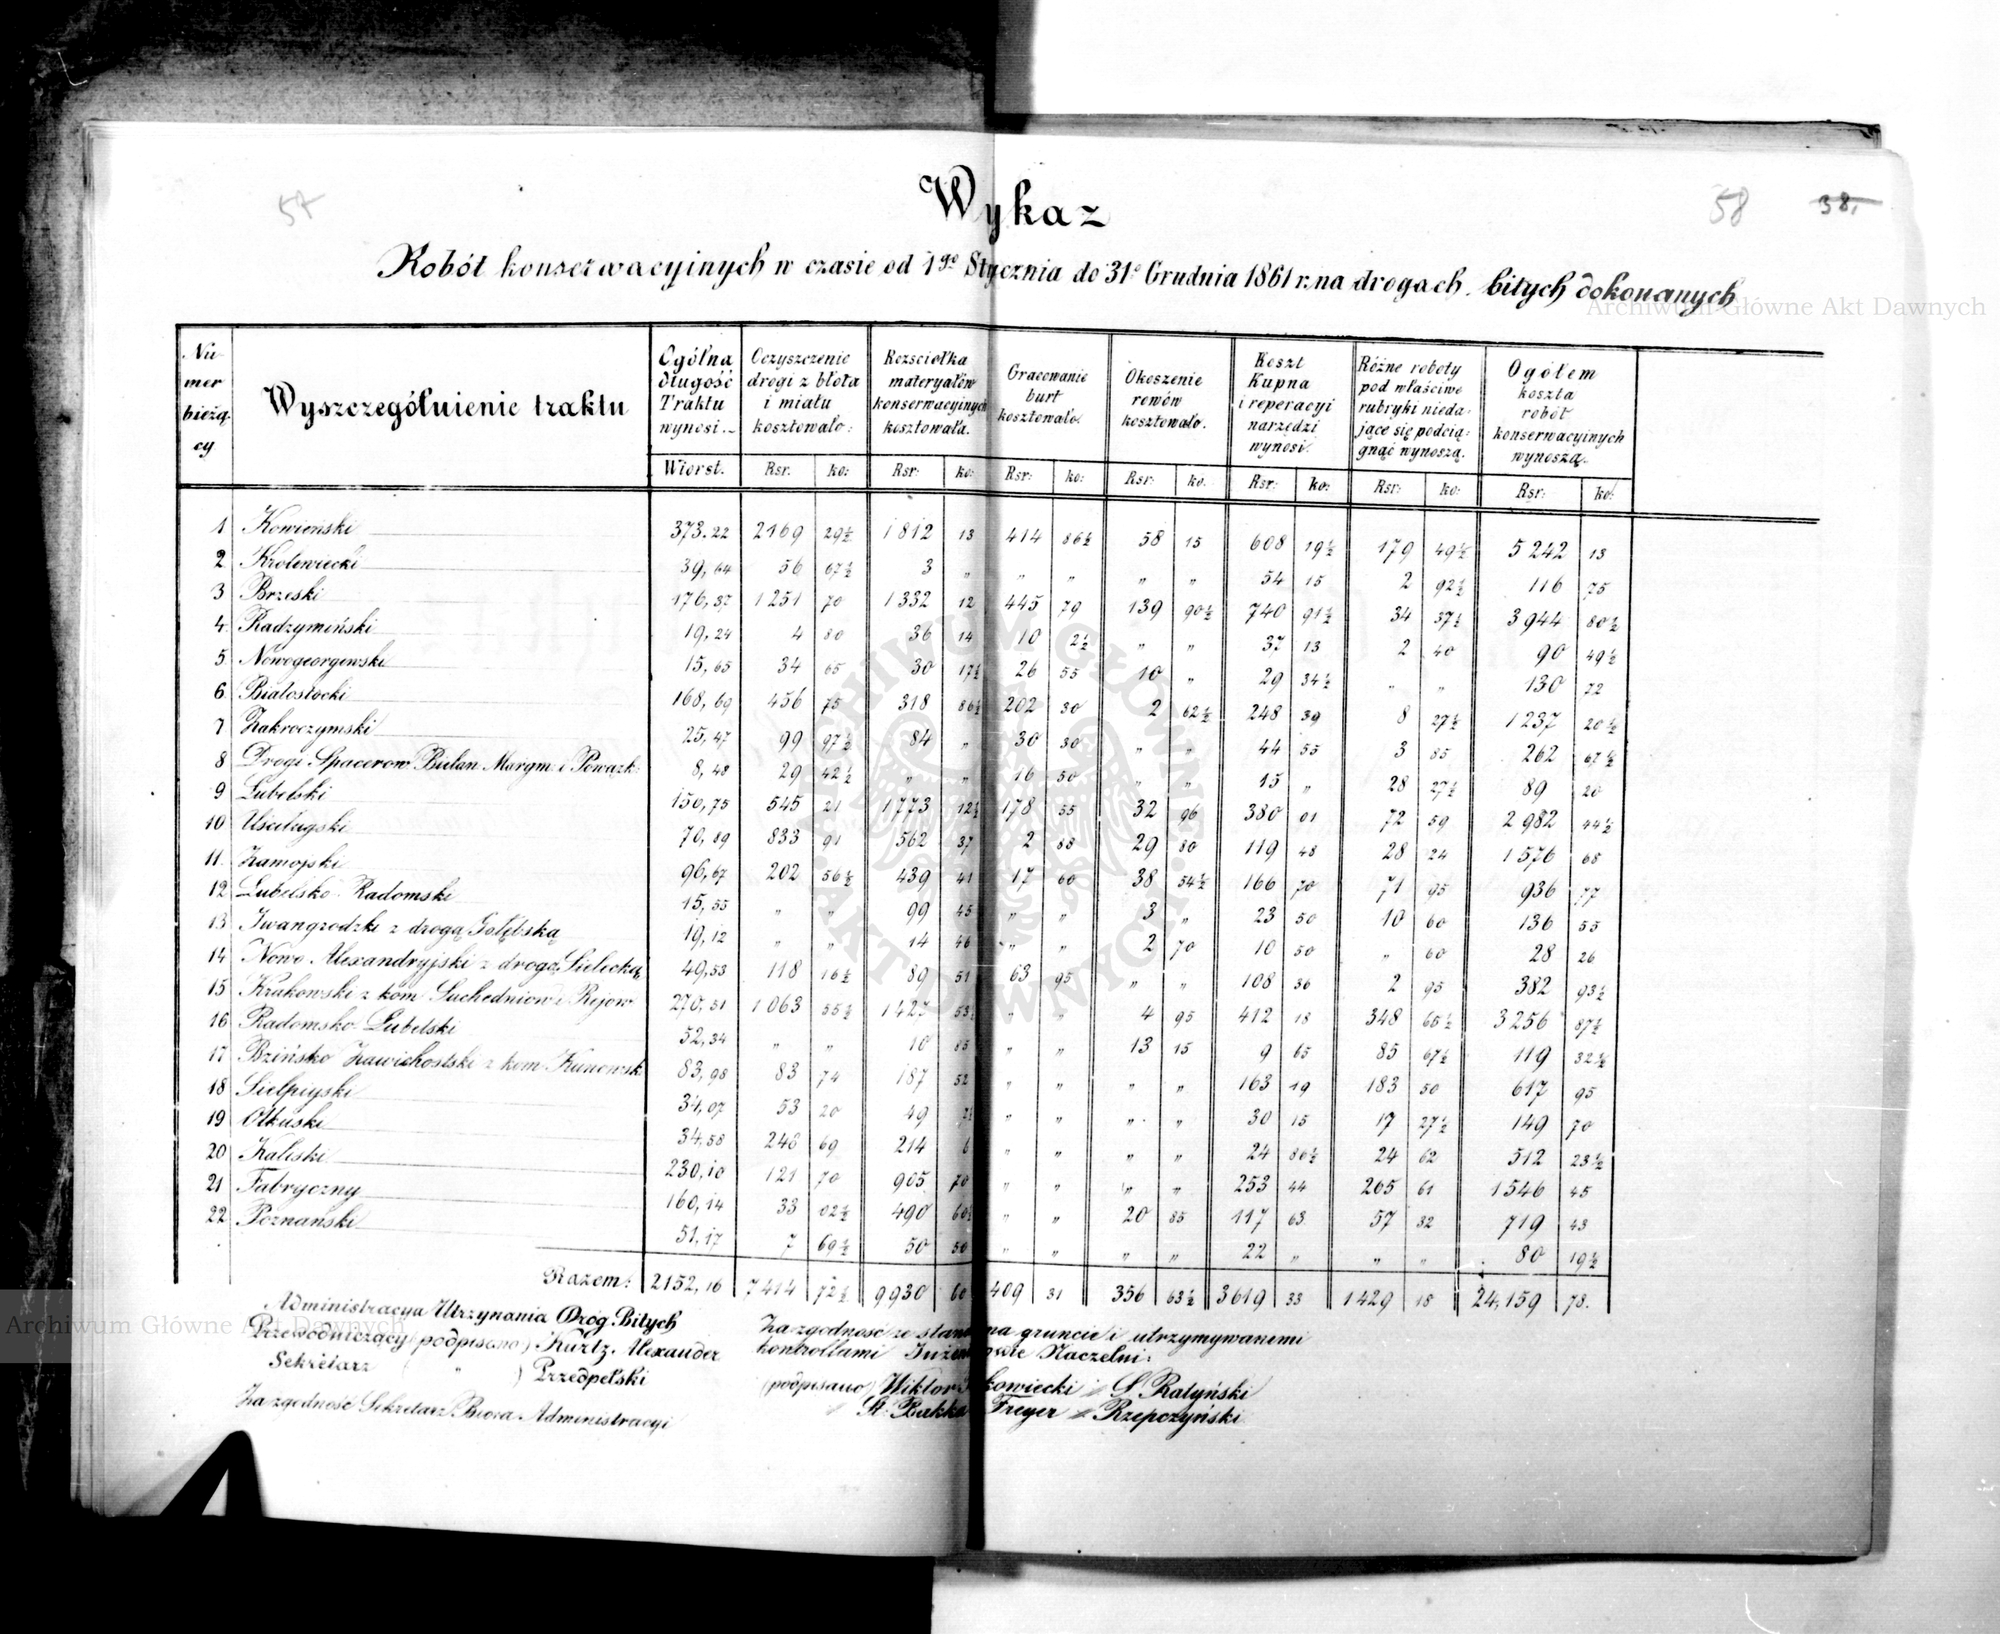 57
58
38,
Wykaz
Robót konserwacyjnych w czasie od 1go Stycznia do 31o Grudnia 1861 r. na drogach bitych dokonanych
Numer bieżący | Wyszczególnienie traktu | Ogólna długość Traktu wynosi. | Oczyszczenie drogi z błota i miału kosztowało: | Rozsciołka materyałów konserwacyjnych kosztowała. | Gracowanie burt kosztowało. | Okoszenie rowów kosztowało. | Koszt Kupna i reperacyi narzędzi wynosi. | Różne roboty pod właściwe rubryki niedające się podciągnąć wynoszą. | Ogółem koszta robót konserwacyjnych wynoszą.
Wiorst. | Rsr. | ko: | Rsr: | ko: | Rsr: | ko: | Rsr: | ko. | Rsr: | ko: | Rsr: | ko: | Rsr: | ko:
1 Kowieński 373.22 2169 29½ 1812 13 414 86½ 58 15 608 19½ 179 49½ 5242 13
2 Krolewiecki 39,64 56 67½ 3 „ „ „ „ „ 54 15 2 92½ 116 75
3 Brzeski 176,37 1251 70 1332 12 445 79 139 90½ 740 91½ 34 37½ 3944 80½
4. Radzymiński 19,24 4 80 36 14 10 2½ „ „ 37 13 2 40 90 49½
5. Nowogeorgewski 15,65 34 65 30 17½ 26 55 10 „ 29 34½ „ „ 130 72
6. Białostocki 168,69 456 75 318 86½ 202 30 2 62½ 248 39 8 27½ 1237 20½
7 Zakroczymski 25,47 99 97½ 84 „ 30 30 „ „ 44 55 3 85 262 67½
8 Drogi Spacerow. Bielan. Marym. i Powązk: 8,48 29 42½ „ „ 16 50 „ „ 15 „ 28 27½ 89 20
9 Lubelski 150,75 545 21 1773 12½ 178 55 32 96 380 01 72 59 2982 44½
10 Uściługski 70,89 833 91 562 37 2 88 29 80 119 48 28 24 1576 68
11. Zamojski 96,67 202 56½ 439 41 17 60 38 54½ 166 70 71 95 936 77
12 Lubelsko-Radomski 15,55 „ „ 99 45 „ „ 3 „ 23 50 10 60 136 55
13 Iwangrodzki z drogą Gołębską 19,12 „ „ 14 46 „ „ 2 70 10 50 „ 60 28 26
14 Nowo Alexandryjski z drogą Sielecką 49,53 118 16½ 89 51 63 95 „ „ 108 36 2 95 382 93½
15 Krakowski z kom. Suchedniow i Rejow 270,51 1063 55½ 1427 53½ „ „ 4 95 412 18 348 65½ 3256 87½
16 Radomsko-Lubelski 52,34 „ „ 10 85 „ „ 13 15 9 65 85 67½ 119 32½
17 Bzińsko Zawichostski z kom. Kunowsk 83,98 83 74 187 52 „ „ „ „ 163 19 183 50 617 95
18 Sielpiyski 34,07 53 20 49 7½ „ „ „ „ 30 15 17 27½ 149 70
19 Olkuski 34,58 248 69 214 6 „ „ „ „ 24 86½ 24 62 512 23½
20 Kaliski 230,10 121 70 905 70 „ „ „ „ 253 44 265 61 1546 45
21 Fabryczny 160,14 33 02½ 490 60½ „ „ 20 85 117 63 57 32 719 43
22 Poznański 51,17 7 69½ 50 50 „ „ „ „ 22 „ „ „ 80 19½
Razem: 2152,16 7414 72½ 9930 60 409 31 356 63½ 3619 33 1429 18 24,159 78.
Administracya Utrzynania Dróg Bitych
Przewodniczący (podpisano) Kurtz. Alexander
Sekretarz ( „ ) Przedpełski
Za zgodność Sekretarz Biora Administracyi
Za zgodność ze stanem na gruncie i utrzymywanemi
kontrollami Inżenierowie Naczelni:
(podpisano) Wiktor kowiecki „ S. Ratyński
„ St. Bakka Freyer „ Rzepczyński
Archiwum Główne Akt Dawnych
Archiwum Główne Akt Dawnych
ARCHIWUM GŁÓWNE AKT DAWNYCH